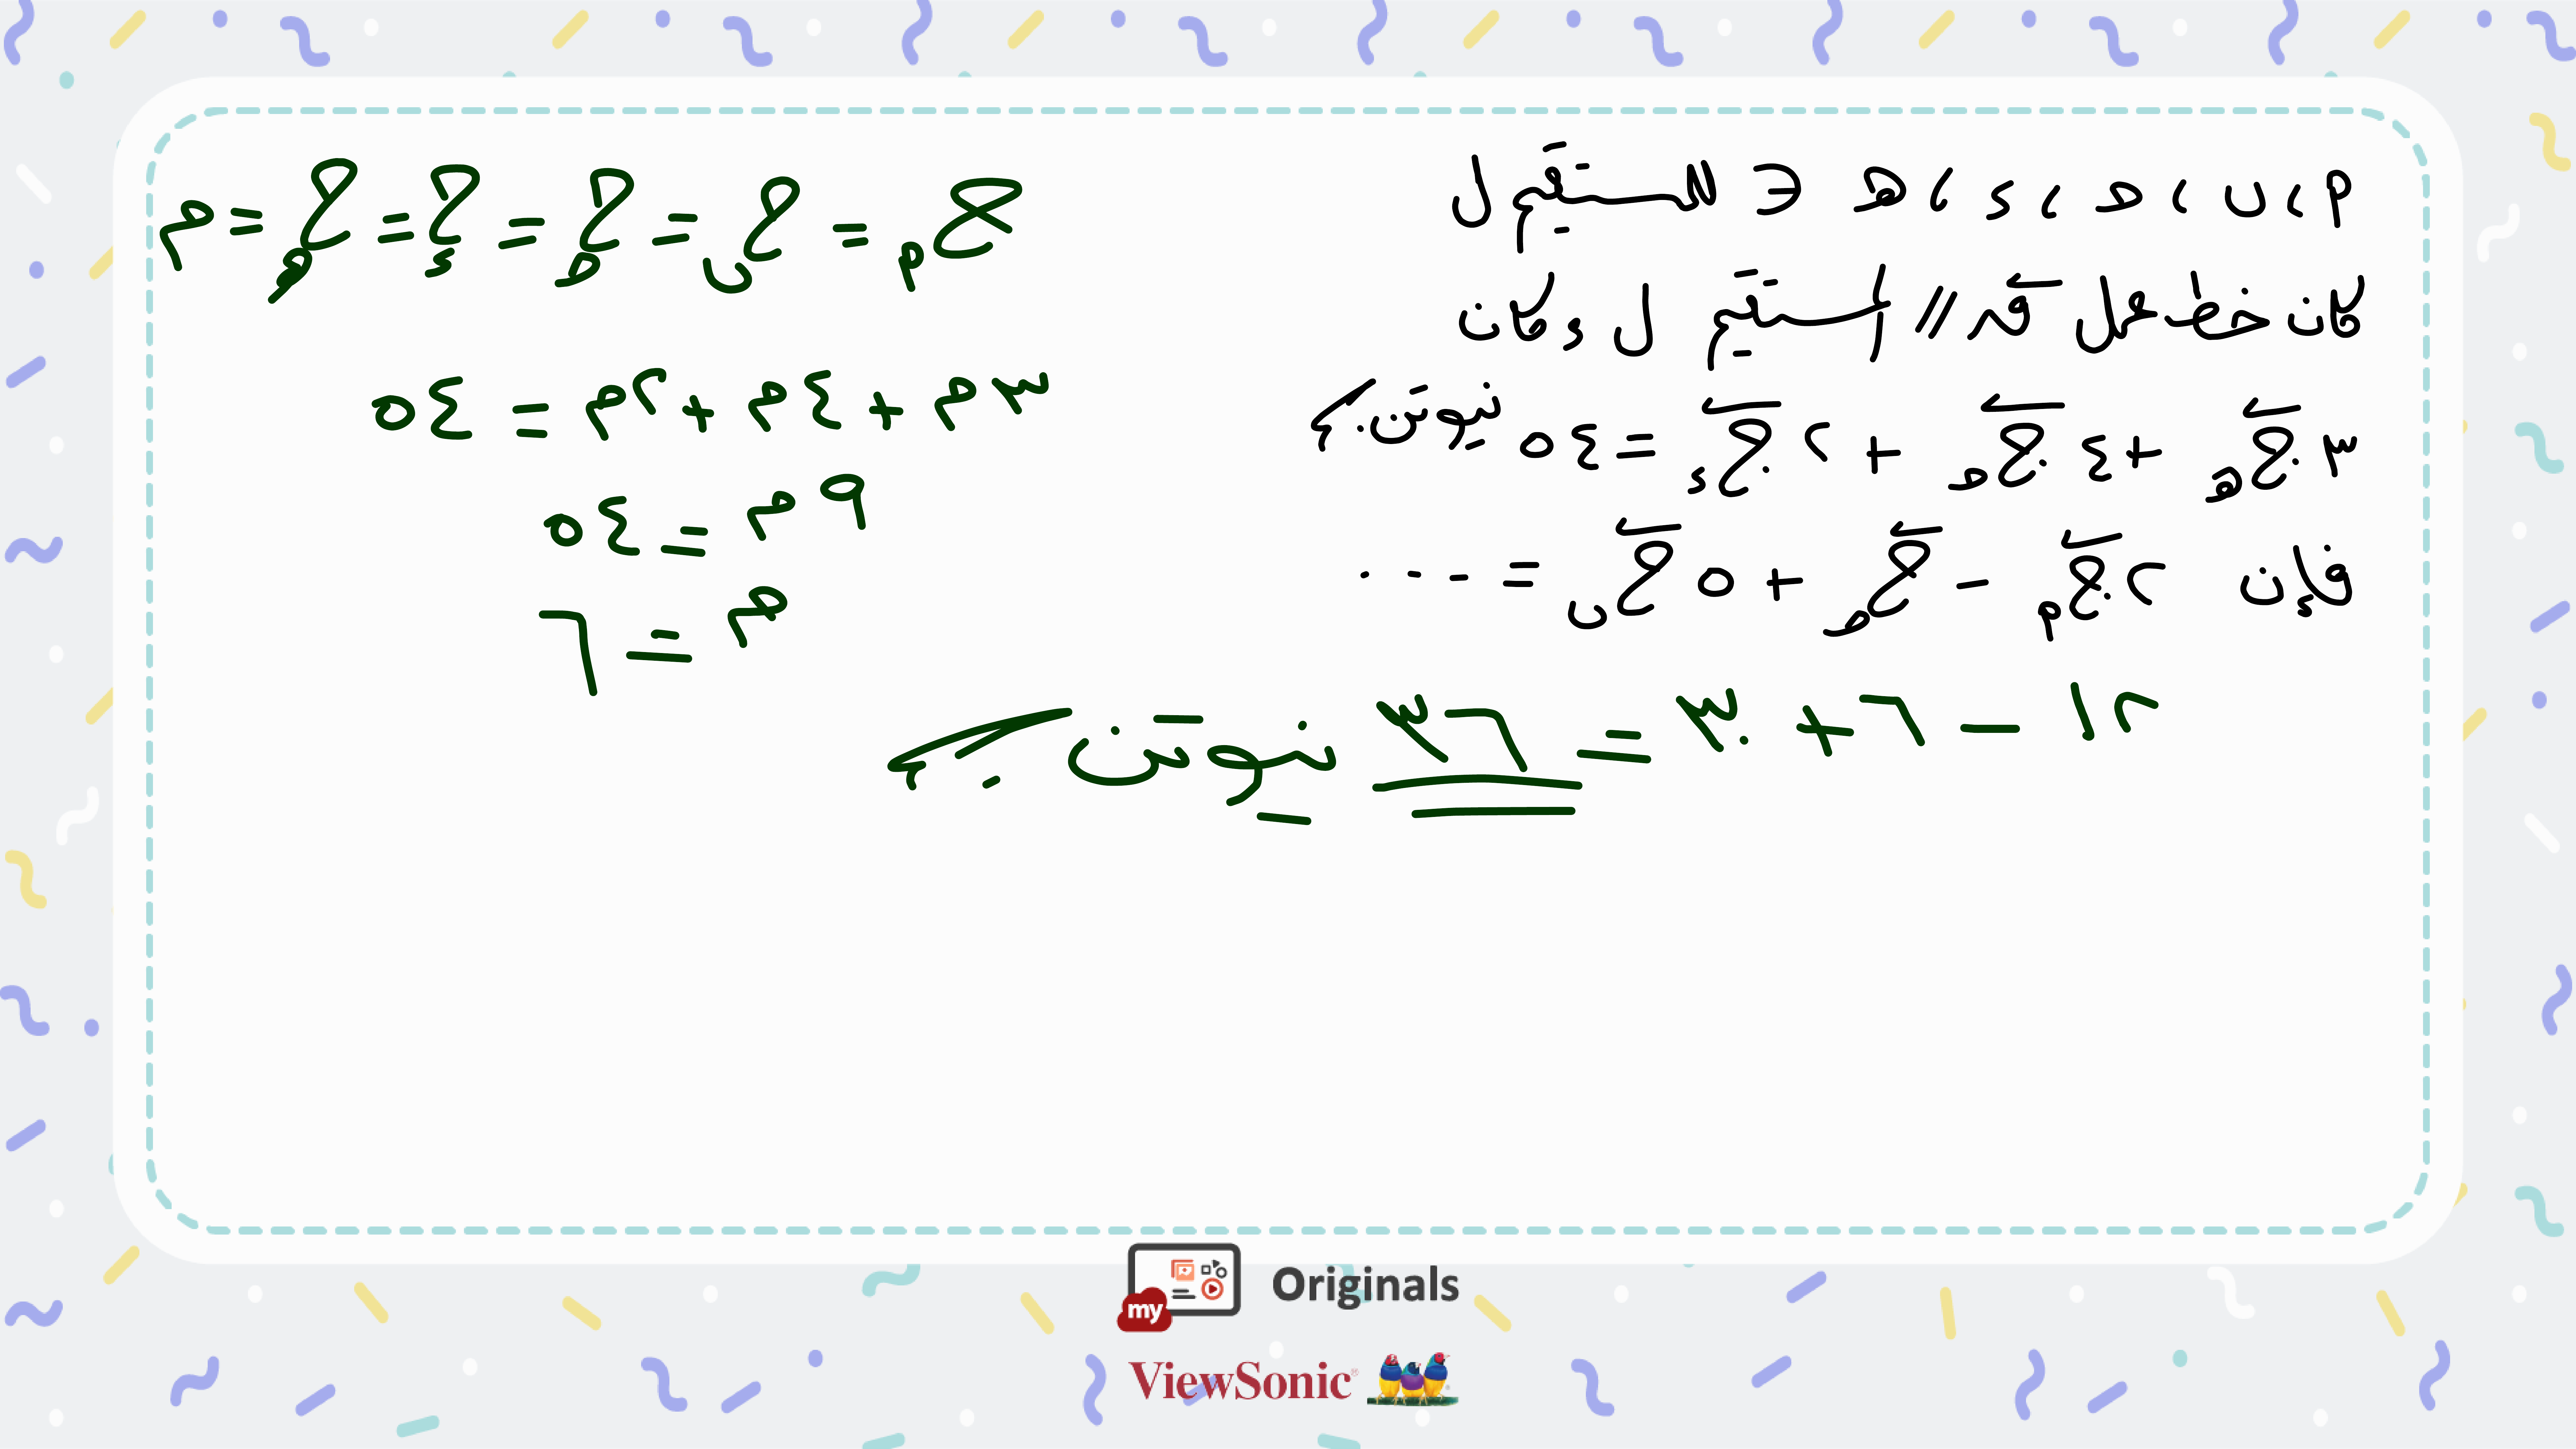 م ، ب ، ح ، د ، هـ ∈ للمستقيم ل
كان خط عمل ق // المستقيم ل ، وكان
٣ ج هـ + ٤ ج ح + ٢ ج د = ٥٤ نيوتن.م
فإن ٢ ج م - ج ح + ٥ ج ب = ...
ج م = ج ب = ج ح = ج د = ج هـ = م
٣م + ٤م + ٢م = ٥٤
٩م = ٥٤
م = ٦
١٢ - ٦ + ٣٠ = ٣٦ نيوتن.م
my Originals
ViewSonic